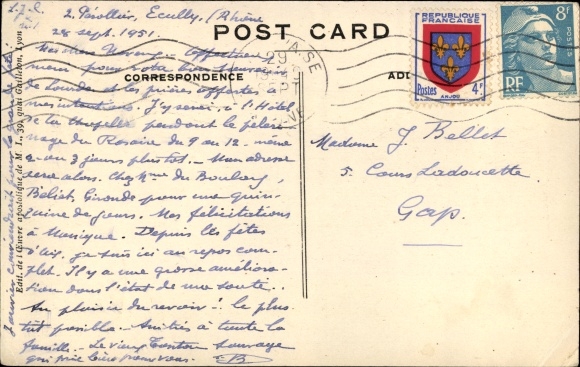 2, Ecully, (Rhône
28 sept. 1951.
POST CARD
CORRESPONDENCE
RÉPUBLIQUE
FRANÇAISE
Postes 4F
ANJOU
8F
POSTES
RF
Lourdes et les prières offertes à
mes intentions. J'y serai, à l'Hôtel
de la Chapelle pendant le pèleri-
nage du Rosaire du 9 au 12 - même
2 ou 3 jours plus tôt. - Mon adresse
sera alors: Chez Mme du
Beliet Gironde pour une quin-
zaine de jours. Mes félicitations
à Monique. Depuis les fêtes
d'Aix, je suis ici au repos com-
plet. Il y a une grosse améliora-
tion dans l'état de ma santé.
Au plaisir de revoir! le plus
tôt possible. Amitiés à toute la
famille. Le vieux Tonton sauvage
qui prie bien pour vous. B
Madame J. Bellet
5. Cours Ladoucette
Gap.
Edit. de l'Œuvre apostolique de M. I., 39, quai Gailleton, Lyon